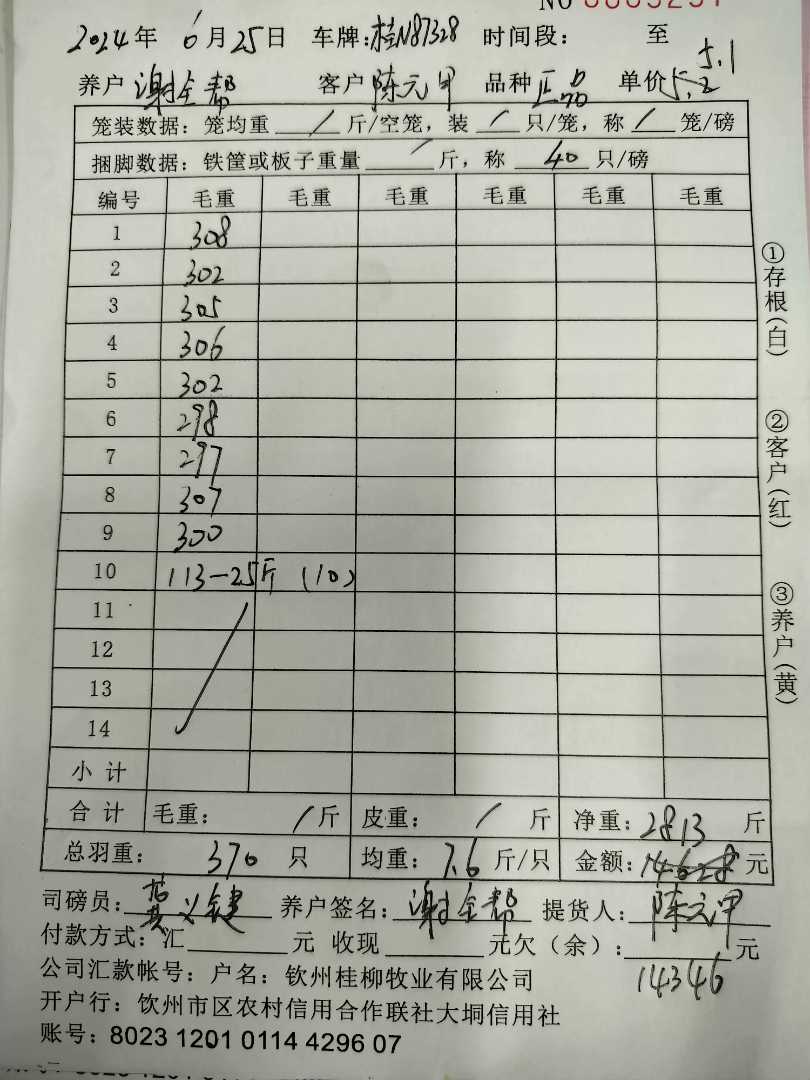 2024年 6月25日 车牌:桂N87328 时间段: 至
5.1
养户 谢全帮 客户 陈元甲 品种 正品 单价 5.2
笼装数据: 笼均重 / 斤/空笼, 装 / 只/笼, 称 / 笼/磅
捆脚数据: 铁筐或板子重量 / 斤, 称 40 只/磅
编号 毛重 毛重 毛重 毛重 毛重 毛重
1 308
2 302
3 305
4 306
5 302
6 298
7 297
8 307
9 300
10 113-25斤 (10)
11
12
13
14
小计
合计 毛重: / 斤 皮重: / 斤 净重: 2813 斤
总羽重: 370 只 均重: 7.6 斤/只 金额: 14628 元
司磅员: 义键 养户签名: 谢全帮 提货人: 陈元甲
付款方式: 汇 元 收现 元欠(余): 元
14346
公司汇款帐号: 户名: 钦州桂柳牧业有限公司
开户行: 钦州市区农村信用合作联社大垌信用社
账号: 8023 1201 0114 4296 07
①存根(白)
②客户(红)
③养户(黄)